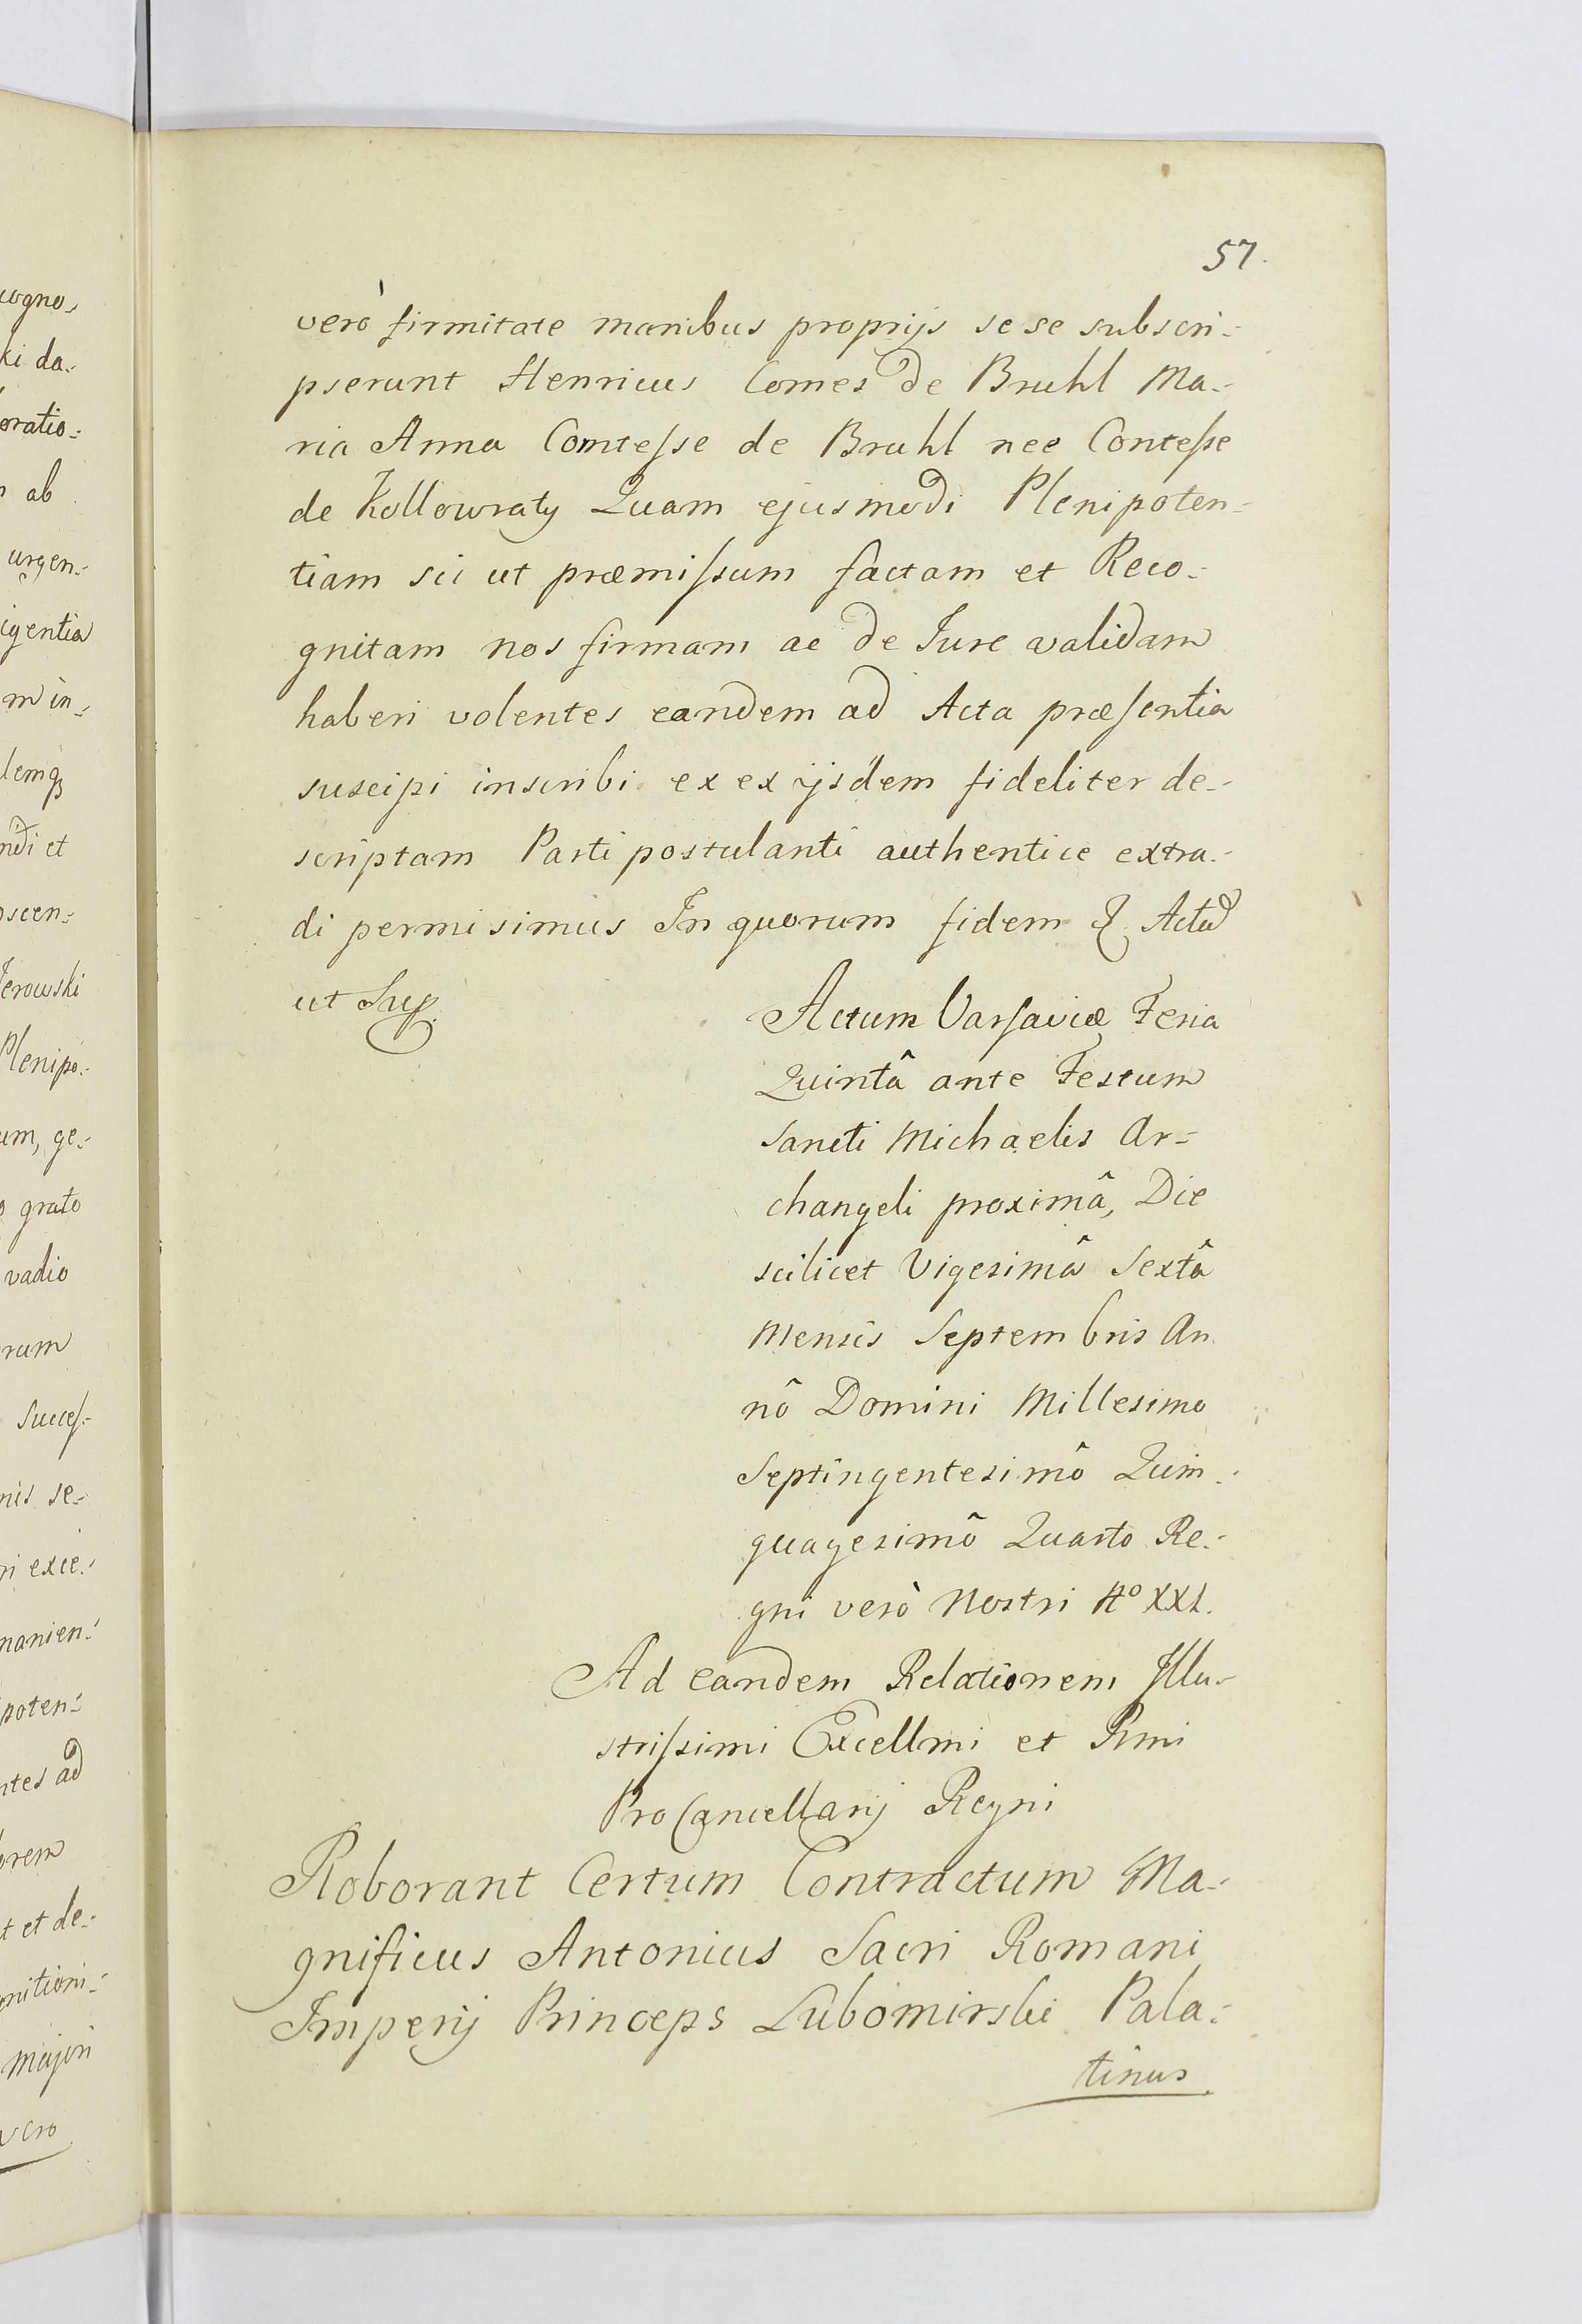 57.
verò firmitate manibus proprijs se se subscri-
pserunt Henricus Comes de Bruhl Ma-
ria Anna Comteſse de Bruhl nee Conteſse
de Kollowraty Quam ejusmodi Plenipoten-
tiam sic ut præmiſsum factam et Reco-
gnitam nos firmam ac de Jure validam
haberi volentes eandem ad Acta præſentia
suscipi inscribi ex ex ijsdem fideliter de-
scriptam Parti postulanti authentice extra-
di permisimus In quorum fidem &. Actu
ut Sup.
Actum Varſaviæ Feria
Quintâ ante Festum
Sancti Michaelis Ar-
changeli proximâ, Die
scilicet Vigesimâ Sextâ
Mensis Septembris An
nô Domini Millesimo
Septingentesimô Quin-
quagesimô Quarto Re-
gni verò Nostri Aº XXI.
Ad eandem Relationem Jllu-
striſsimi Excellmi et Rmi
Pro Cancellarij Regni
Roborant Certum Contractum Ma-
gnificus Antonius Sacri Romani
Imperij Princeps Lubomirski Pala-
tinus
cogno-
ki da-
oratio-
ab
urgen-
igentia
m in-
lemq
ndi et
oscen-
erowski
Plenipo-
um, ge-
grato
vadio
rum
Succeſ-
nis se-
ri exce-
manien-
poten-
ntes ad
orem
t et de-
gnitioni-
majori
vero